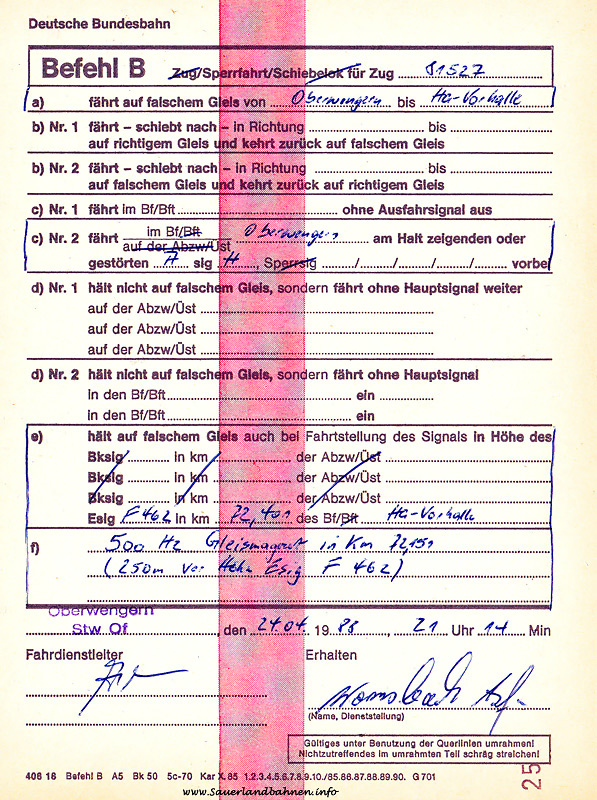 Deutsche Bundesbahn
Befehl B Zug/Sperrfahrt/Schiebelok für Zug 81527
a) fährt auf falschem Gleis von Oberwengern bis Ha-Vorhalle
b) Nr. 1 fährt – schiebt nach – in Richtung bis
auf richtigem Gleis und kehrt zurück auf falschem Gleis
b) Nr. 2 fährt – schiebt nach – in Richtung bis
auf falschem Gleis und kehrt zurück auf richtigem Gleis
c) Nr. 1 fährt im Bf/Bft ohne Ausfahrsignal aus
c) Nr. 2 fährt im Bf/Bft
auf der Abzw/Üst Oberwengern am Halt zeigenden oder
gestörten A sig H, Sperrsig / / / / vorbei
d) Nr. 1 hält nicht auf falschem Gleis, sondern fährt ohne Hauptsignal weiter
auf der Abzw/Üst
auf der Abzw/Üst
auf der Abzw/Üst
d) Nr. 2 hält nicht auf falschem Gleis, sondern fährt ohne Hauptsignal
in den Bf/Bft ein
in den Bf/Bft ein
e) hält auf falschem Gleis auch bei Fahrtstellung des Signals in Höhe des
Bksig in km der Abzw/Üst
Bksig in km der Abzw/Üst
Bksig in km der Abzw/Üst
Esig F 462 in km 72,401 des Bf/Bft Ha-Vorhalle
f) 500 Hz Gleismagnet in Km 72,151
(250m vor Esig F 462)
Oberwengern
Stw Of, den 24.04. 1988, 21 Uhr 14 Min
Fahrdienstleiter Erhalten
(Name, Dienststellung)
Gültiges unter Benutzung der Querlinien umrahmen!
Nichtzutreffendes im umrahmten Teil schräg streichen!
408 16 Befehl B A5 Bk 50 5c-70 Kar X.85 1.2.3.4.5.6.7.8.9.10./85.86.87.88.89.90. G 701
25
www.sauerlandbahnen.info